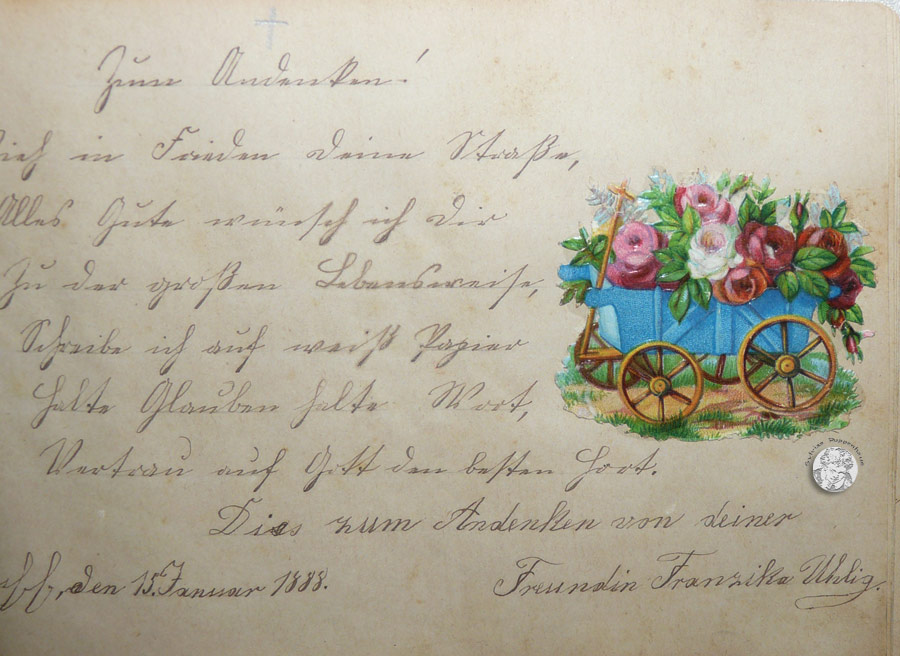 Zum Andenken!
Zieh in Frieden deine Straße,
Alles Gute wünsch ich dir
Zu der großen Lebensreise,
Schreibe ich auf weiß Papier
Halte Glauben halte Wort,
Vertrau auf Gott den besten Hort.
Dies zum Andenken von deiner
den 15. Januar 1888. Freundin Franziska Uhlig.